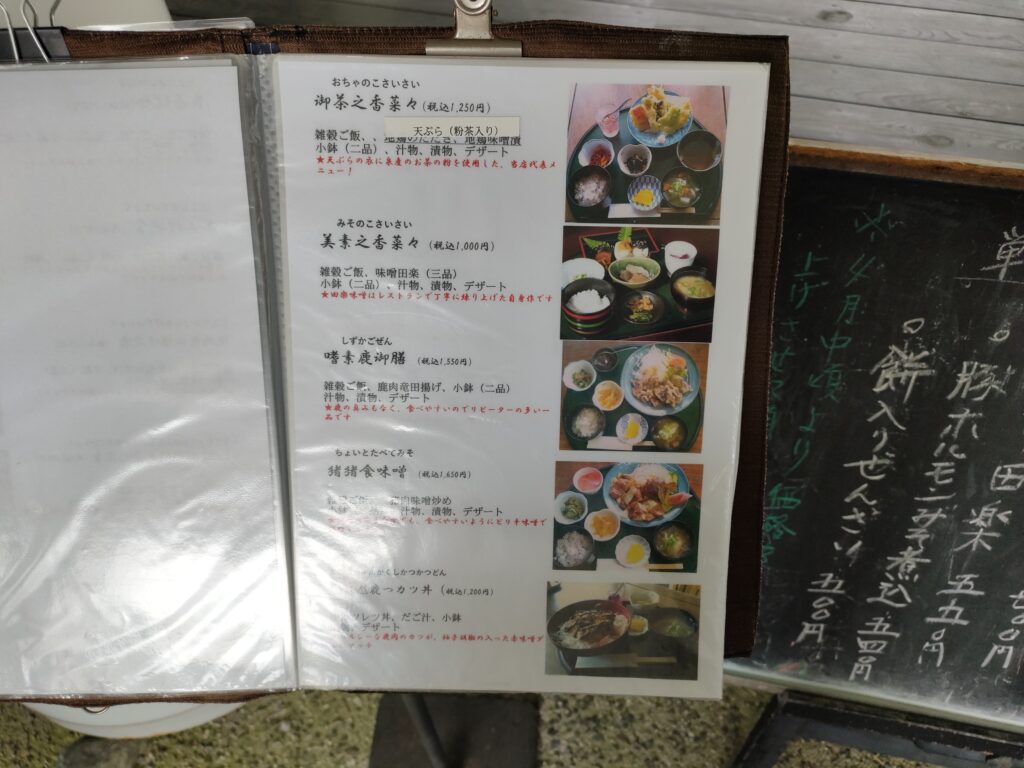 おちゃのこさいさい
御茶之香菜々(税込1,250円)
天ぷら(粉茶入り)
雑穀ご飯、、地鶏のたたき、地鶏味噌漬
小鉢(二品)、汁物、漬物、デザート
★天ぷらの衣に泉産のお茶の粉を使用した、当店代表メ
ニュー!
みそのこさいさい
美素之香菜々(税込1,000円)
雑穀ご飯、味噌田楽(三品)
小鉢(二品)、汁物、漬物、デザート
★田楽味噌はレストランで丁寧に練り上げた自身作です
しずかごぜん
嗜素鹿御膳(税込1,550円)
雑穀ご飯、鹿肉竜田揚げ、小鉢(二品)
汁物、漬物、デザート
★鹿の臭みもなく、食べやすいのでリピーターの多い一
品です
ちょいとたべてみそ
猪猪食味噌(税込1,650円)
肉味噌炒め
汁物、漬物、デザート
食べやすいようにピリ辛味噌で
がくしかつかつどん
鹿つカツ丼(税込1,200円)
ツレツ丼、だご汁、小鉢
、デザート
な鹿肉のカツが、柚子胡椒の入った赤味噌ダ
マッチ
田楽 五五〇円
豚ホルモンみそ煮込 五四〇円
餅入りぜんざい 五〇〇円
月中頃より
上げさせて